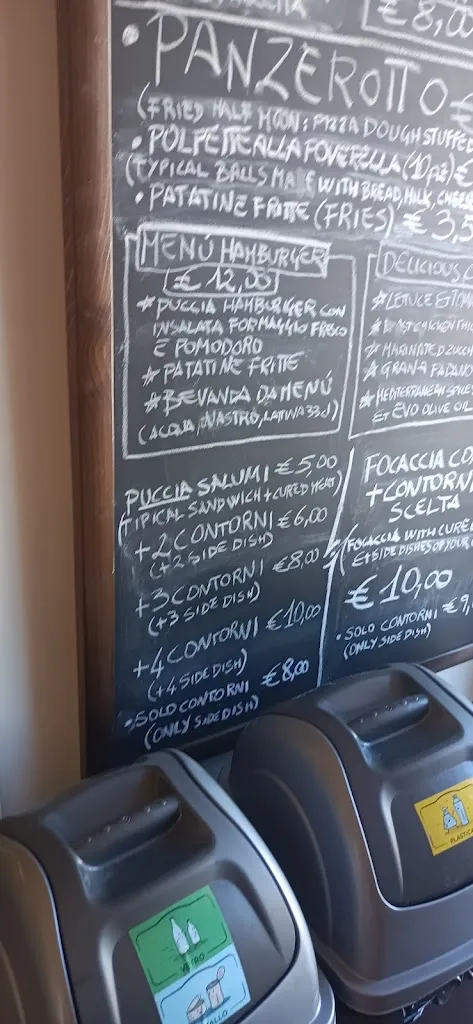 € 8,00
• PANZEROTTO
(FRIED HALF MOON: PIZZA DOUGH STUFFED
• POLPETTE ALLA POVERELLA (10 pz) €
(TYPICAL BALLS MADE WITH BREAD, MILK, CHEESE
• PATATINE FRITTE (FRIES) € 3,5
MENÚ HAMBURGER
€ 12,00
* PUCCIA HAMBURGER CON
INSALATA FORMAGGIO FRESCO
E POMODORO
* PATATINE FRITTE
* BEVANDA DA MENÚ
(ACQUA, NASTRO, LATTINA 33cl)
DELICIOUS
* LETUCE
* MARINATED ZUCCH
* GRANA PADANO
* MEDITERRANEAN SPICES
ET EVO OLIVE OIL
PUCCIA SALUMI € 5,00
(TIPICAL SANDWICH + CURED MEAT)
+2 CONTORNI € 6,00
(+2 SIDE DISH)
+3 CONTORNI € 8,00
(+3 SIDE DISH)
+4 CONTORNI € 10,00
(+4 SIDE DISH)
• SOLO CONTORNI € 8,00
(ONLY SIDE DISH)
FOCACCIA CO
+ CONTORNI
SCELTA
(FOCACCIA WITH CURE
ET SIDE DISHES OF YOUR
€ 10,00
• SOLO CONTORNI € 9,
(ONLY SIDE DISH)
PLASTICA
VETRO